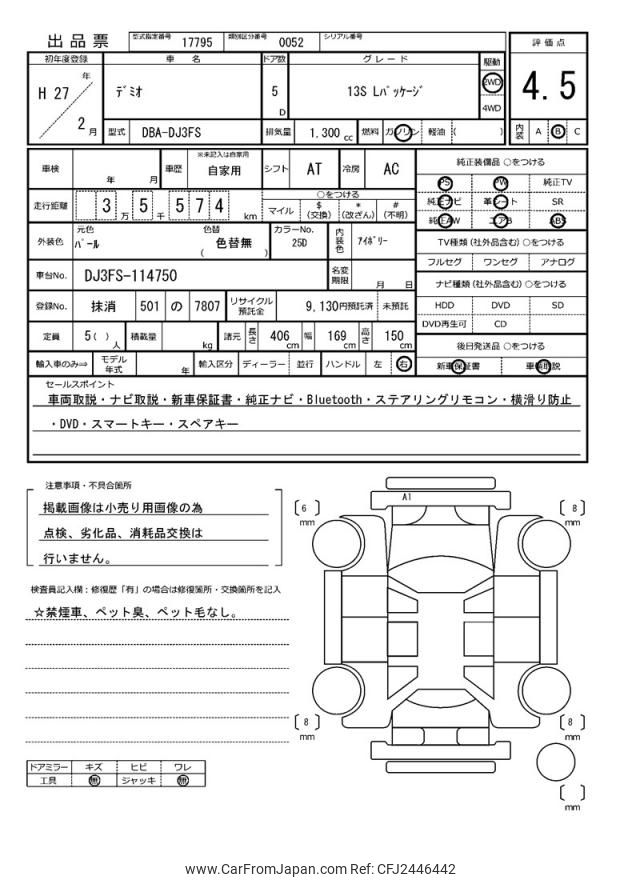 出品票 型式指定番号 17795 類別区分番号 0052 シリアル番号
評価点
初年度登録 車名 ドア数 グレード 駆動
H 27 年 2 月
デミオ 5 D 13S Lパッケージ 2WD 4WD
4.5
型式 DBA-DJ3FS 排気量 1,300 cc 燃料 ガソリン 軽油 ( )
内装 A B C
車検 年 月 車歴 ※未記入は自家用 自家用 シフト AT 冷房 AC
純正装備品 ○をつける
PS PW 純正TV
走行距離 3 万 5 千 5 7 4 km
○をつける
マイル $(交換) *(改ざん) #(不明)
純正ナビ 革シート SR
純正AW エアB ABS
外装色 元色 パール 色替 ( 色替無 ) カラーNo. 25D 内装色 アイボリー
TV種類 (社外品含む) ○をつける
フルセグ ワンセグ アナログ
車台No. DJ3FS-114750 名変期限 月 日
ナビ種類 (社外品含む) ○をつける
登録No. 抹消 501 の 7807 リサイクル預託金 9,130円預託済 未預託
HDD DVD SD
DVD再生可 CD
定員 5 ( ) 人 積載量 kg 諸元 長さ 406 cm 幅 169 cm 高さ 150 cm
後日発送品 ○をつける
輸入車のみ⇒ モデル年式 年 輸入区分 ディーラー 並行 ハンドル 左 右
新車保証書 車輌取説
セールスポイント
車両取説・ナビ取説・新車保証書・純正ナビ・Bluetooth・ステアリングリモコン・横滑り防止
・DVD・スマートキー・スペアキー
注意事項・不具合箇所
掲載画像は小売り用画像の為
点検、劣化品、消耗品交換は
行いません。
検査員記入欄：修復歴「有」の場合は修復箇所・交換箇所を記入
☆禁煙車、ペット臭、ペット毛なし。
A1
6 mm
8 mm
8 mm
8 mm
mm
ドアミラー キズ ヒビ ワレ
工具 無 ジャッキ 無
www.CarFromJapan.com Ref: CFJ2446442